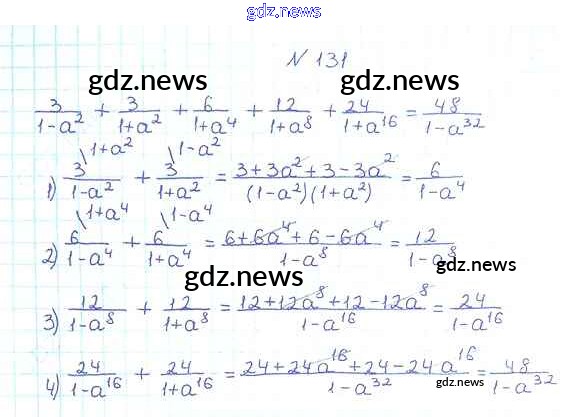 gdz.news
N 131
gdz.news gdz.news
3/(1-a²) + 3/(1+a²) + 6/(1+a⁴) + 12/(1+a⁸) + 24/(1+a¹⁶) = 48/(1-a³²)
1) 3\1+a²/(1-a²) + 3\1-a²/(1+a²) = (3+3a²+3-3a²)/((1-a²)(1+a²)) = 6/(1-a⁴)
2) 6\1+a⁴/(1-a⁴) + 6\1-a⁴/(1+a⁴) = (6+6a⁴+6-6a⁴)/(1-a⁸) = 12/(1-a⁸)
gdz.news gdz.news
3) 12/(1-a⁸) + 12/(1+a⁸) = (12+12a⁸+12-12a⁸)/(1-a¹⁶) = 24/(1-a¹⁶)
4) 24/(1-a¹⁶) + 24/(1+a¹⁶) = (24+24a¹⁶+24-24a¹⁶)/(1-a³²) = 48/(1-a³²)
gdz.news gdz.news